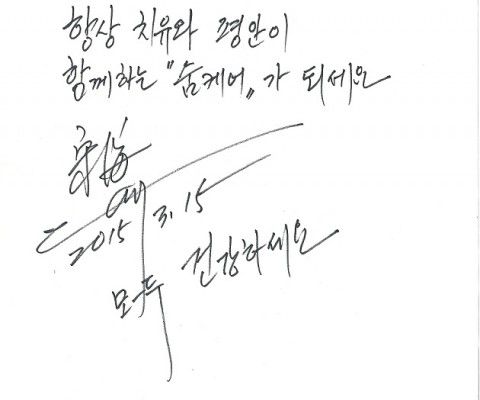 항상 치유와 평안이
함께하는 "숨케어"가 되세요
宋海
2015. 3. 15
모두 건강하세요